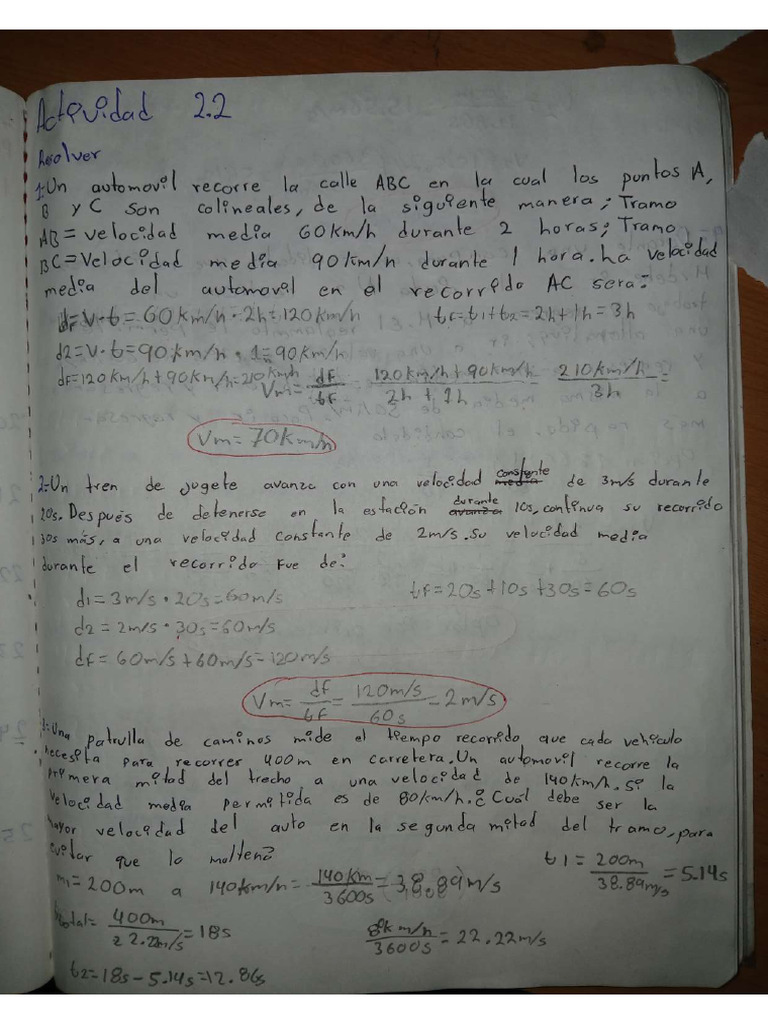 Actividad 2.2
Resolver
1:Un automovil recorre la calle ABC en la cual los puntos A,
B y C son colineales, de la siguiente manera; Tramo
AB = velocidad media 60km/h durante 2 horas; Tramo
BC = Velocidad media 90km/h durante 1 hora. ha velocidad
media del automovil en el recorrido AC sera:
df=v·t=60km/h·2h=120km/h tf=t1+t2=2h+1h=3h
d2=v·t=90km/h·1=90km/h
df=120km/h+90km/h=210km/h Vm=df/tf 120km/h+90km/h/2h+1h = 210km/h/3h =
Vm=70km/h
2:Un tren de jugete avanza con una velocidad media constante de 3m/s durante
20s. Después de detenerse en la estación avanza durante 10s, continua su recorrido
30s más, a una velocidad constante de 2m/s. Su velocidad media
durante el recorrido fue de:
d1=3m/s·20s=60m/s tf=20s+10s+30s=60s
d2=2m/s·30s=60m/s
df=60m/s+60m/s=120m/s
Vm=df/tf=120m/s/60s=2m/s
3:Una patrulla de caminos mide el tiempo recorrido que cada vehiculo
necesita para recorrer 400m en carretera. Un automovil recorre la
primera mitad del trecho a una velocidad de 140km/h. si la
velocidad media permitida es de 80km/h. ¿Cuál debe ser la
mayor velocidad del auto en la segunda mitad del tramo, para
evitar que lo molten?
m1=200m a 140km/h=140km/3600s=38.89m/s t1=200m/38.89m/s=5.14s
total=400m/22.22m/s=18s 80km/h/3600s=22.22m/s
t2=18s-5.14s=12.86s